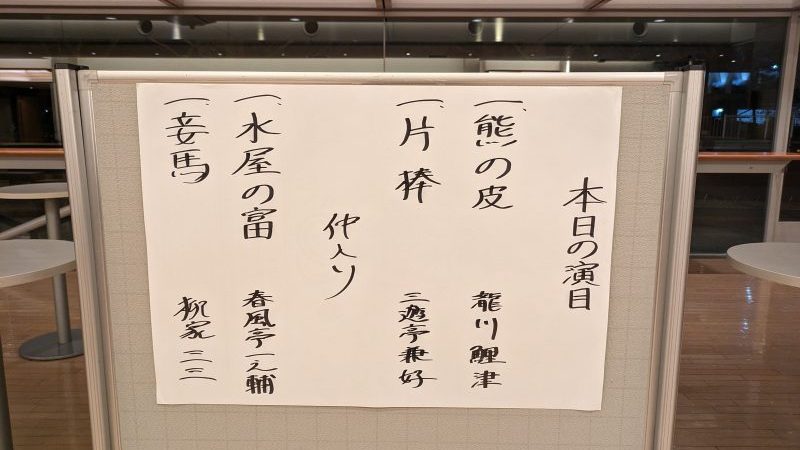 本日の演目
一、熊の皮 龍川鯉津
一、片棒 三遊亭兼好
仲入り
一、水屋の富 春風亭一之輔
一、妾馬 柳家三三